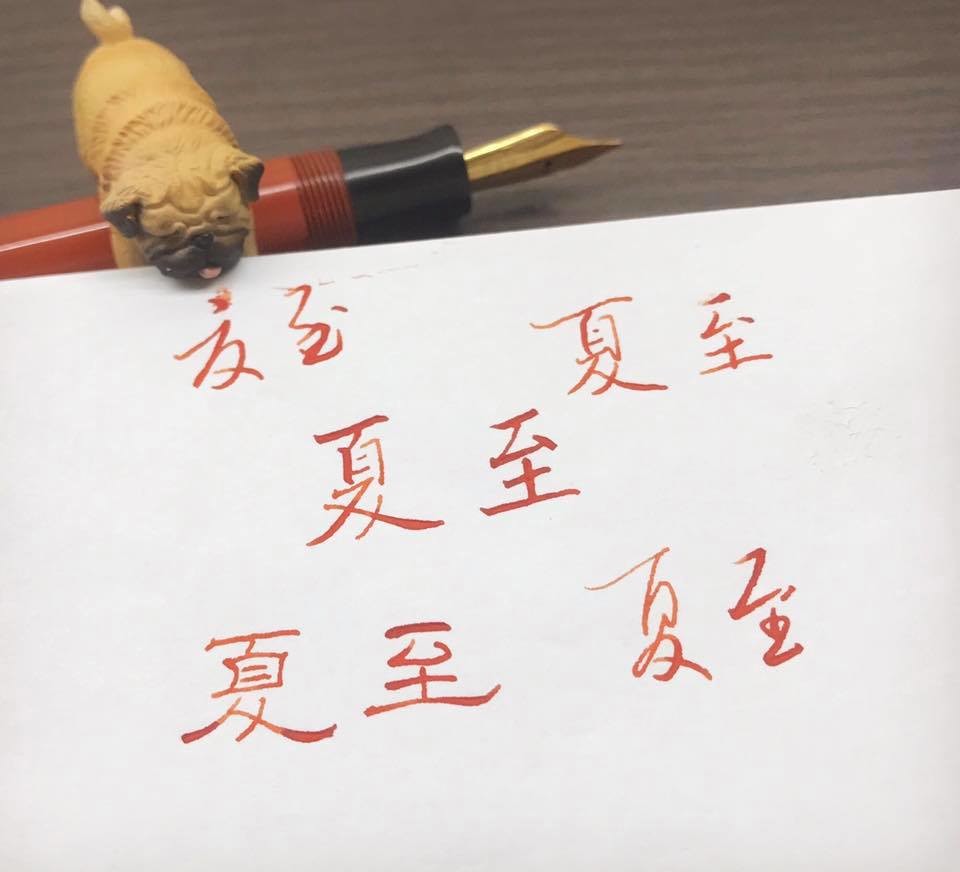 夏至 夏至
夏至
夏至 夏至